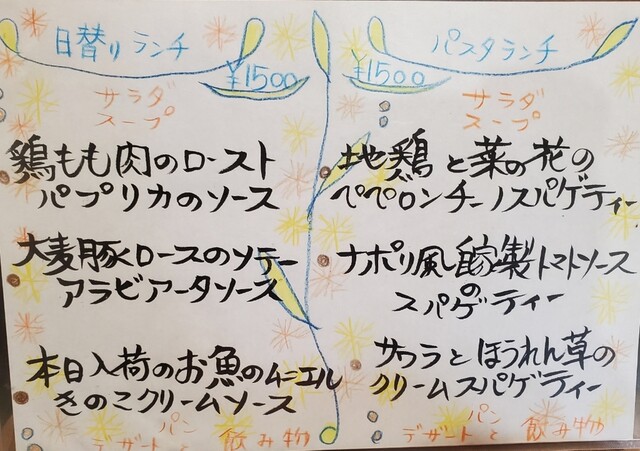 日替りランチ
¥1500
サラダ
スープ
鶏もも肉のロースト
パプリカのソース
大麦豚ロースのソテー
アラビアータソース
本日入荷のお魚のムニエル
きのこクリームソース
パン
デザートと飲み物
パスタランチ
¥1500
サラダ
スープ
地鶏と菜の花の
ペペロンチーノスパゲティー
ナポリ風自家製トマトソース
の
スパゲティー
サワラとほうれん草の
クリームスパゲティー
パン
デザートと飲み物